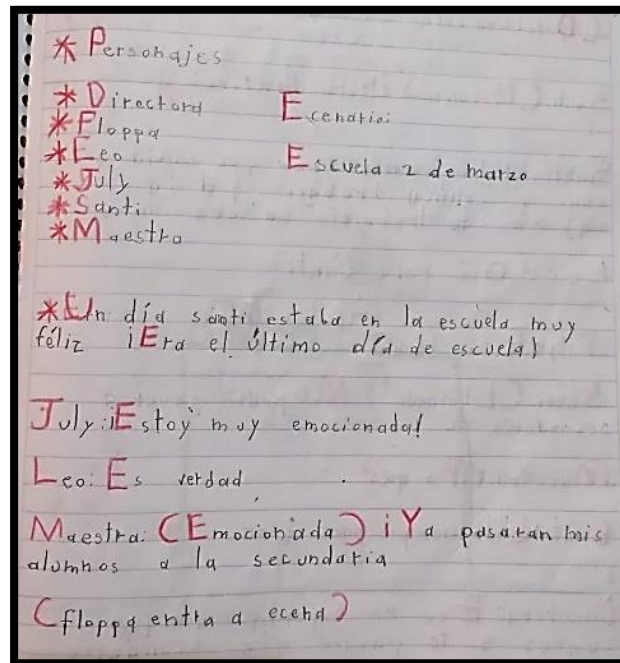 * Personajes
* Directora
* Floppa
* Leo
* July
* Santi
* Maestra
Ecenario:
Escuela 2 de marzo
* Un día santi estaba en la escuela muy
féliz ¡Era el último día de escuela!
July: ¡Estoy muy emocionada!
Leo: Es verdad
Maestra: (Emocionada) ¡Ya pasaran mis
alumnos a la secundaria
(floppa entra a ecena)